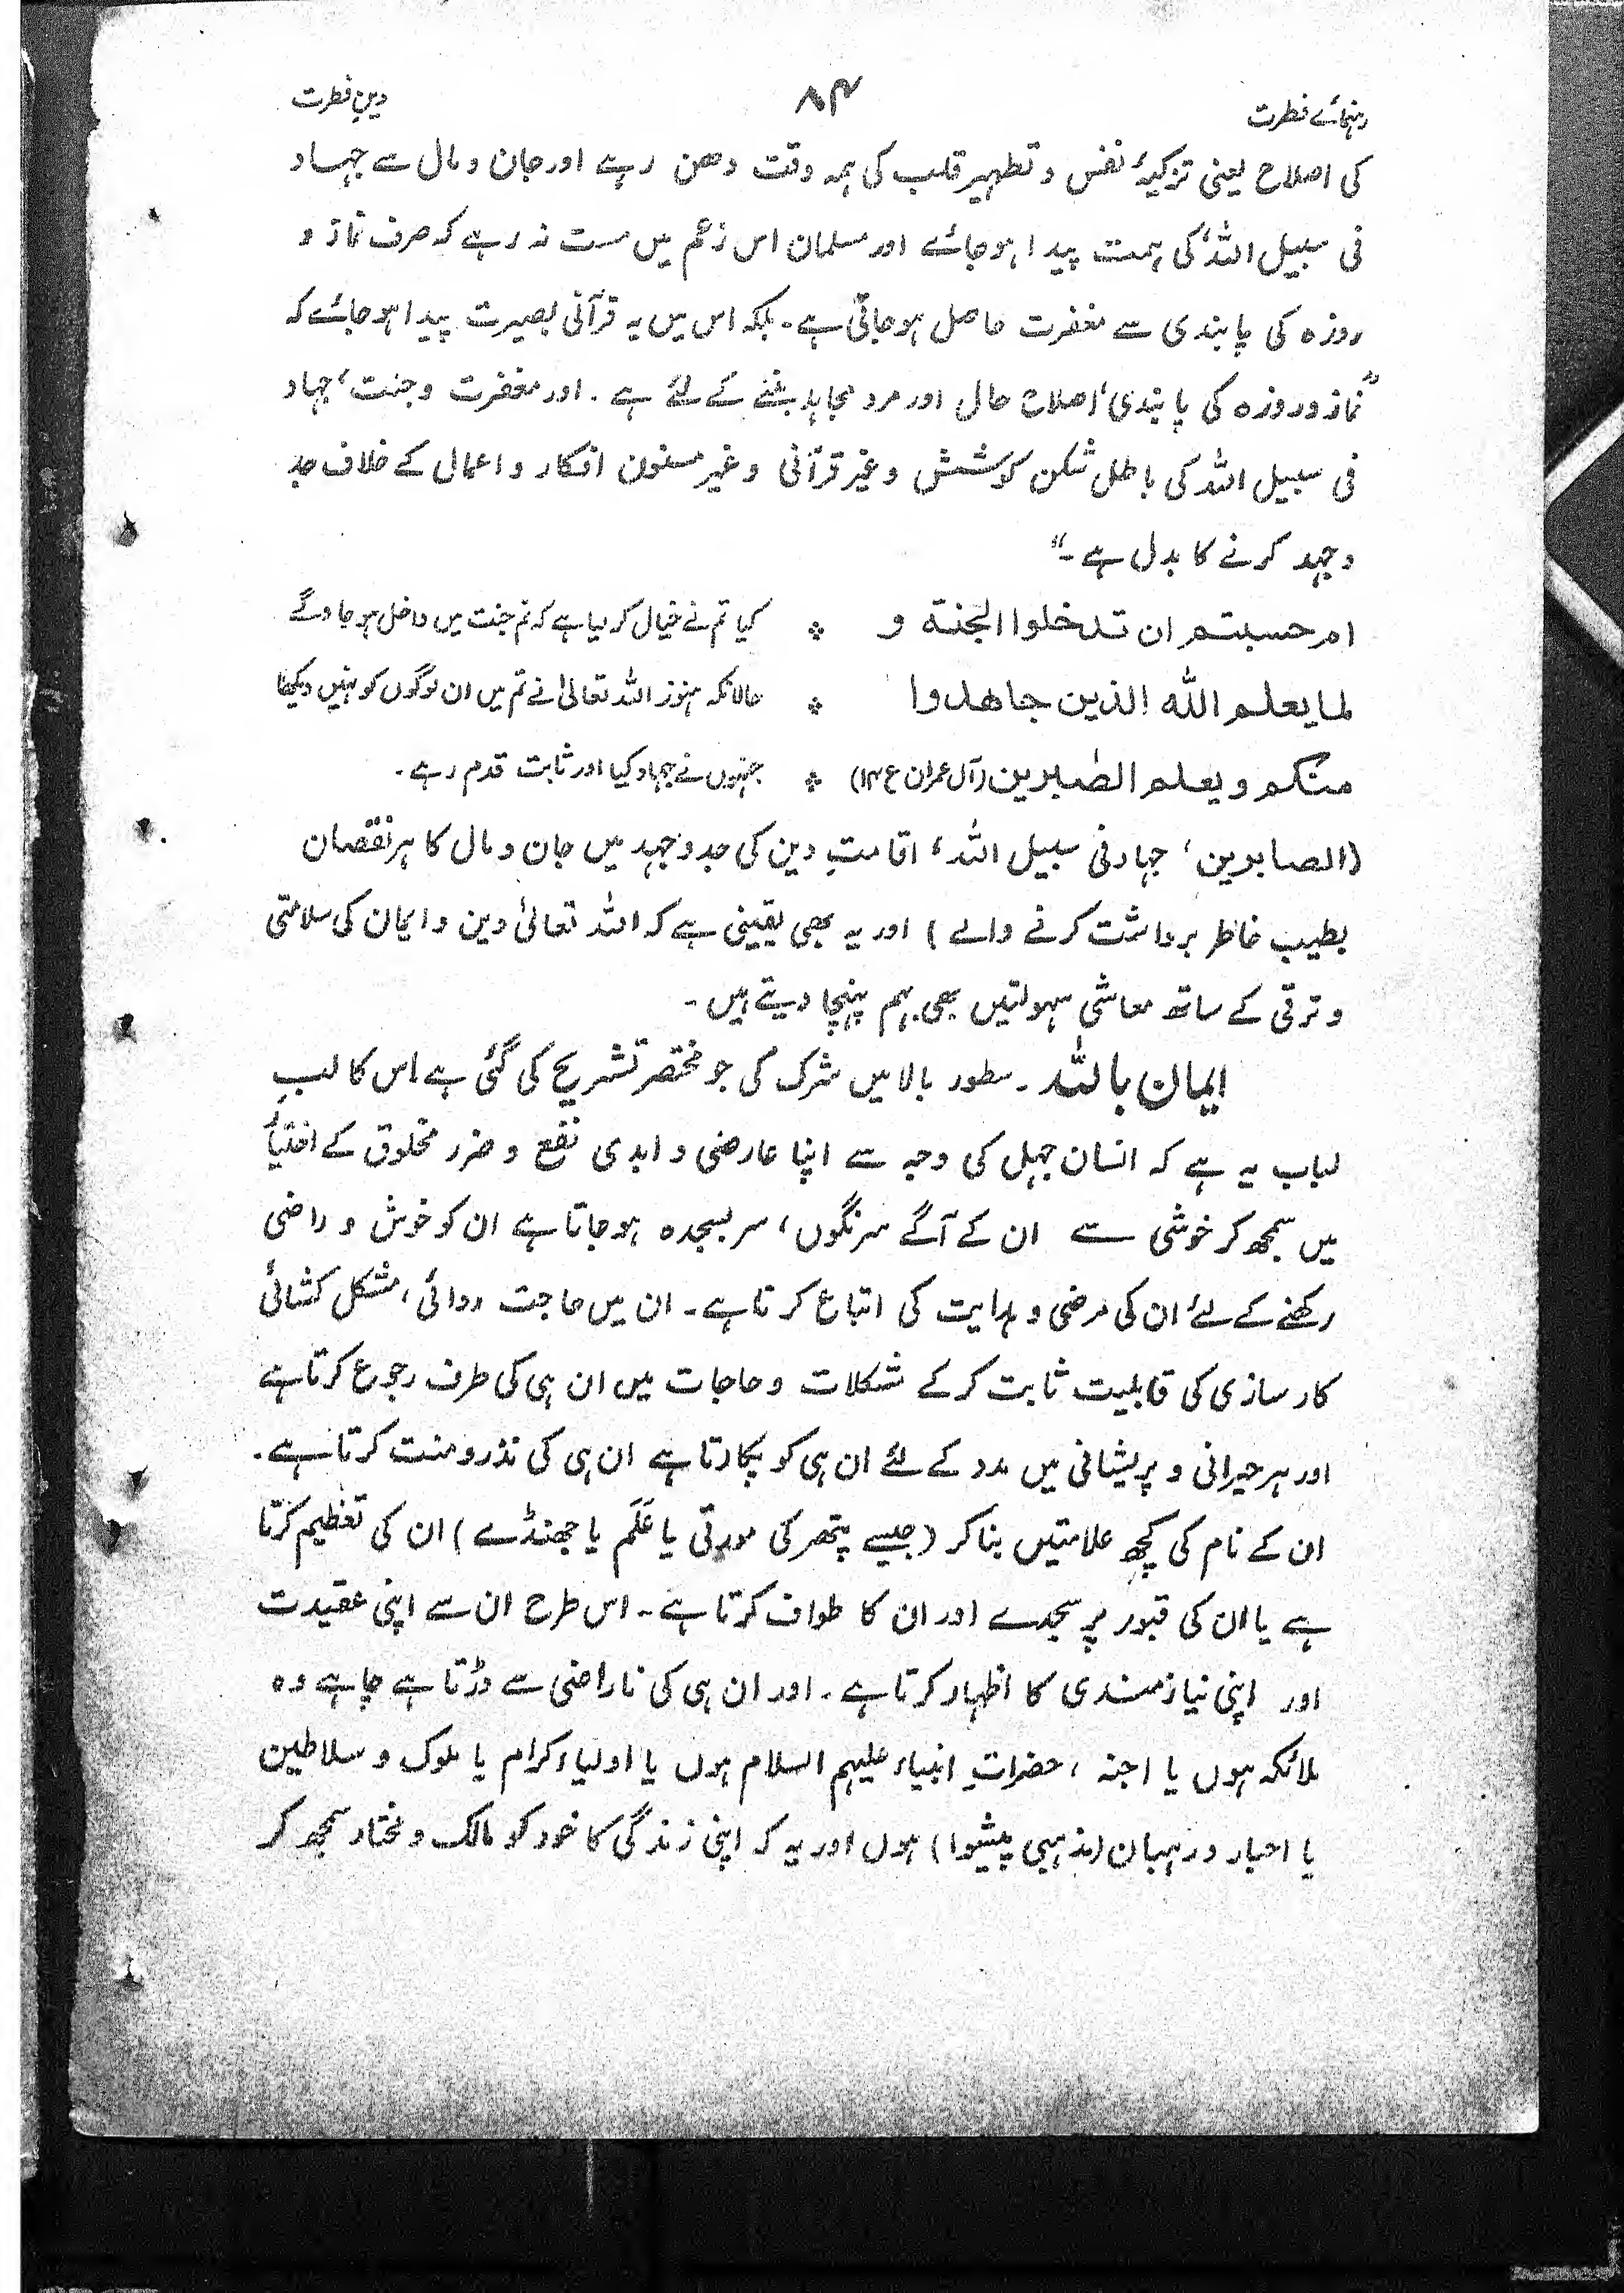 رہنمائے فطرت ۸۴ دینِ فطرت
کی اصلاح یعنی تزکیۂ نفس و تطہیر قلب کی ہمہ وقت دھن رہے اور جان و مال سے جہاد
فی سبیل اللہ کی ہمت پیدا ہو جائے اور مسلمان اس زعم میں مست نہ رہے کہ صرف نماز و
روزہ کی پابندی سے مغفرت حاصل ہو جاتی ہے۔ بلکہ اس میں یہ قرآنی بصیرت پیدا ہو جائے کہ
”نماز و روزہ کی پابندی، اصلاح حال اور مرد مجاہد بننے کے لئے ہے۔ اور مغفرت و جنت، جہاد
فی سبیل اللہ کی باطل شکن کوشش و غیر قرآنی و غیر مسنون افکار و اعمال کے خلاف جد
و جہد کرنے کا بدل ہے۔“
ام حسبتم ان تدخلوا الجنة و ؞ کیا تم نے خیال کر لیا ہے کہ تم جنت میں داخل ہو جاؤ گے
لما یعلم اللہ الذین جاھدوا ؞ حالانکہ ہنوز اللہ تعالیٰ نے تم میں ان لوگوں کو نہیں دیکھا
منکم و یعلم الصٰبرین (آل عمران ع ۱۴) ؞ جنہوں نے جہاد کیا اور ثابت قدم رہے۔
(الصابرین، جہاد فی سبیل اللہ، اقامتِ دین کی جدوجہد میں جان و مال کا ہر نقصان
بطیب خاطر برداشت کرنے والے) اور یہ بھی یقینی ہے کہ اللہ تعالیٰ دین و ایمان کی سلامتی
و ترقی کے ساتھ معاشی سہولتیں بھی بہم پہنچا دیتے ہیں۔
ایمان باللہ۔ سطور بالا میں شرک کی جو مختصر تشریح کی گئی ہے اس کا لبِ
لباب یہ ہے کہ انسان جہل کی وجہ سے اپنا عارضی و ابدی نفع و ضرر مخلوق کے اختیار
میں سمجھ کر خوشی سے ان کے آگے سرنگوں، سربسجدہ ہو جاتا ہے ان کو خوش و راضی
رکھنے کے لئے ان کی مرضی و ہدایت کی اتباع کرتا ہے۔ ان میں حاجت روائی، مشکل کشائی
کارسازی کی قابلیت ثابت کر کے مشکلات و حاجات میں ان ہی کی طرف رجوع کرتا ہے
اور ہر حیرانی و پریشانی میں مدد کے لئے ان ہی کو پکارتا ہے ان ہی کی نذر و منت کرتا ہے۔
ان کے نام کی کچھ علامتیں بنا کر (جیسے پتھر کی مورتی یا عَلَم یا جھنڈے) ان کی تعظیم کرتا
ہے یا ان کی قبور پر سجدے اور ان کا طواف کرتا ہے۔ اس طرح ان سے اپنی عقیدت
اور اپنی نیازمندی کا اظہار کرتا ہے۔ اور ان ہی کی ناراضی سے ڈرتا ہے چاہے وہ
ملائکہ ہوں یا اجنہ، حضراتِ انبیاء علیہم السلام ہوں یا اولیاء کرام یا ملوک و سلاطین
یا احبار و رہبان (مذہبی پیشوا) ہوں اور یہ کہ اپنی زندگی کا خود کو مالک و مختار سمجھ کر